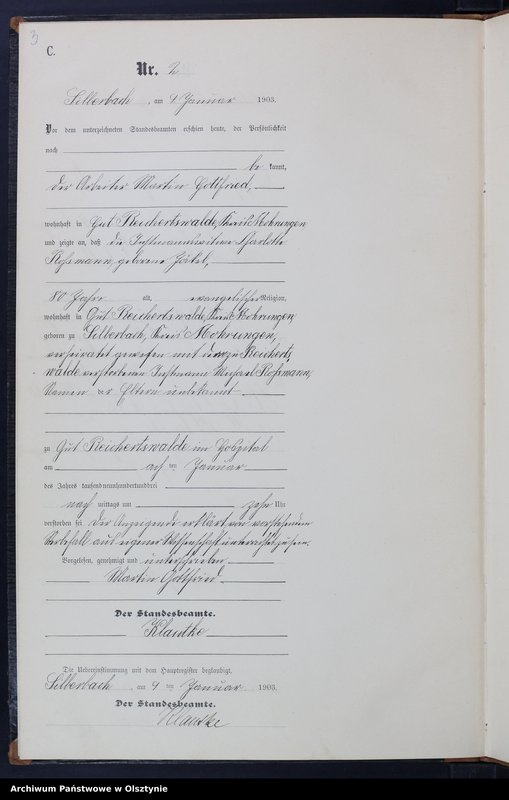 3
C.
Nr. 2
Silberbach, am 9 Januar 1903.
Vor dem unterzeichneten Standesbeamten erschien heute, der Persönlichkeit
nach
be kannt,
der Arbeiter Martin Gottfried,
wohnhaft in Gut Reichertswalde, Kreis Mohrungen
und zeigte an, daß die Instmannswitwe Charlotte
Roßmann, geborene
80 Jahre alt, evangelischer Religion,
wohnhaft in Gut Reichertswalde, Kreis Mohrungen,
geboren zu Silberbach, Kreis Mohrungen,
verheiratet gewesen mit dem zu Reicherts,
walde verstorbenen Instmann Michael Roßmann,
Namen der Eltern unbekannt
zu Gut Reichertswalde im Hospital
am acht ten Januar
des Jahres tausendneunhundertunddrei
nach mittags um zehn Uhr
verstorben sei. Der Anzeigende erklärt von vorstehendem
Sterbefall aus eigener Wissenschaft unterrichtet zu sein.
Vorgelesen, genehmigt und unterschrieben
Martin Gottfried
Der Standesbeamte.
Klautke
Die Uebereinstimmung mit dem Hauptregister beglaubigt.
Silberbach, am 9 ten Januar 1903.
Der Standesbeamte.
Klautke
Archiwum Państwowe w Olsztynie